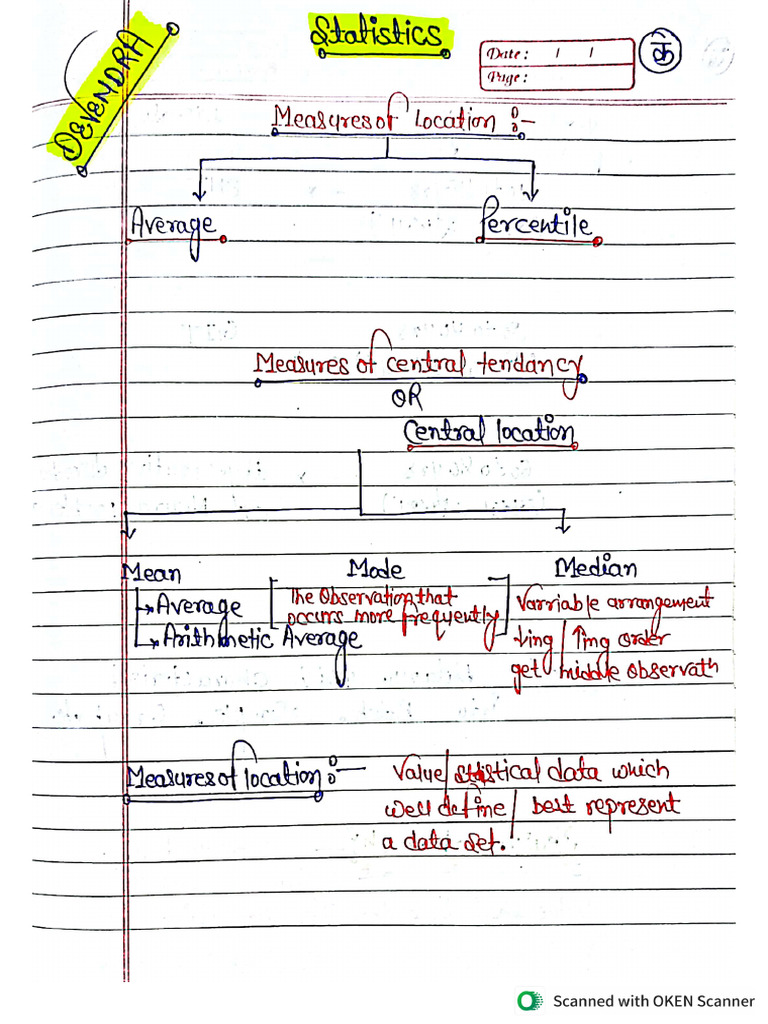 Statistics
DEVENDRA
Date : / /
Page :
के
Measures of location :-
Average
Percentile
Measures of central tendancy
OR
Central location
Mean
Mode
Median
Average
Arithmetic Average
The Observation that
occurs more frequently
Varriable arrangement
↓ing / ↑ing order
get middle observath
Measures of location :-
Value / statistical data which
well define / best represent
a data set.
Scanned with OKEN Scanner